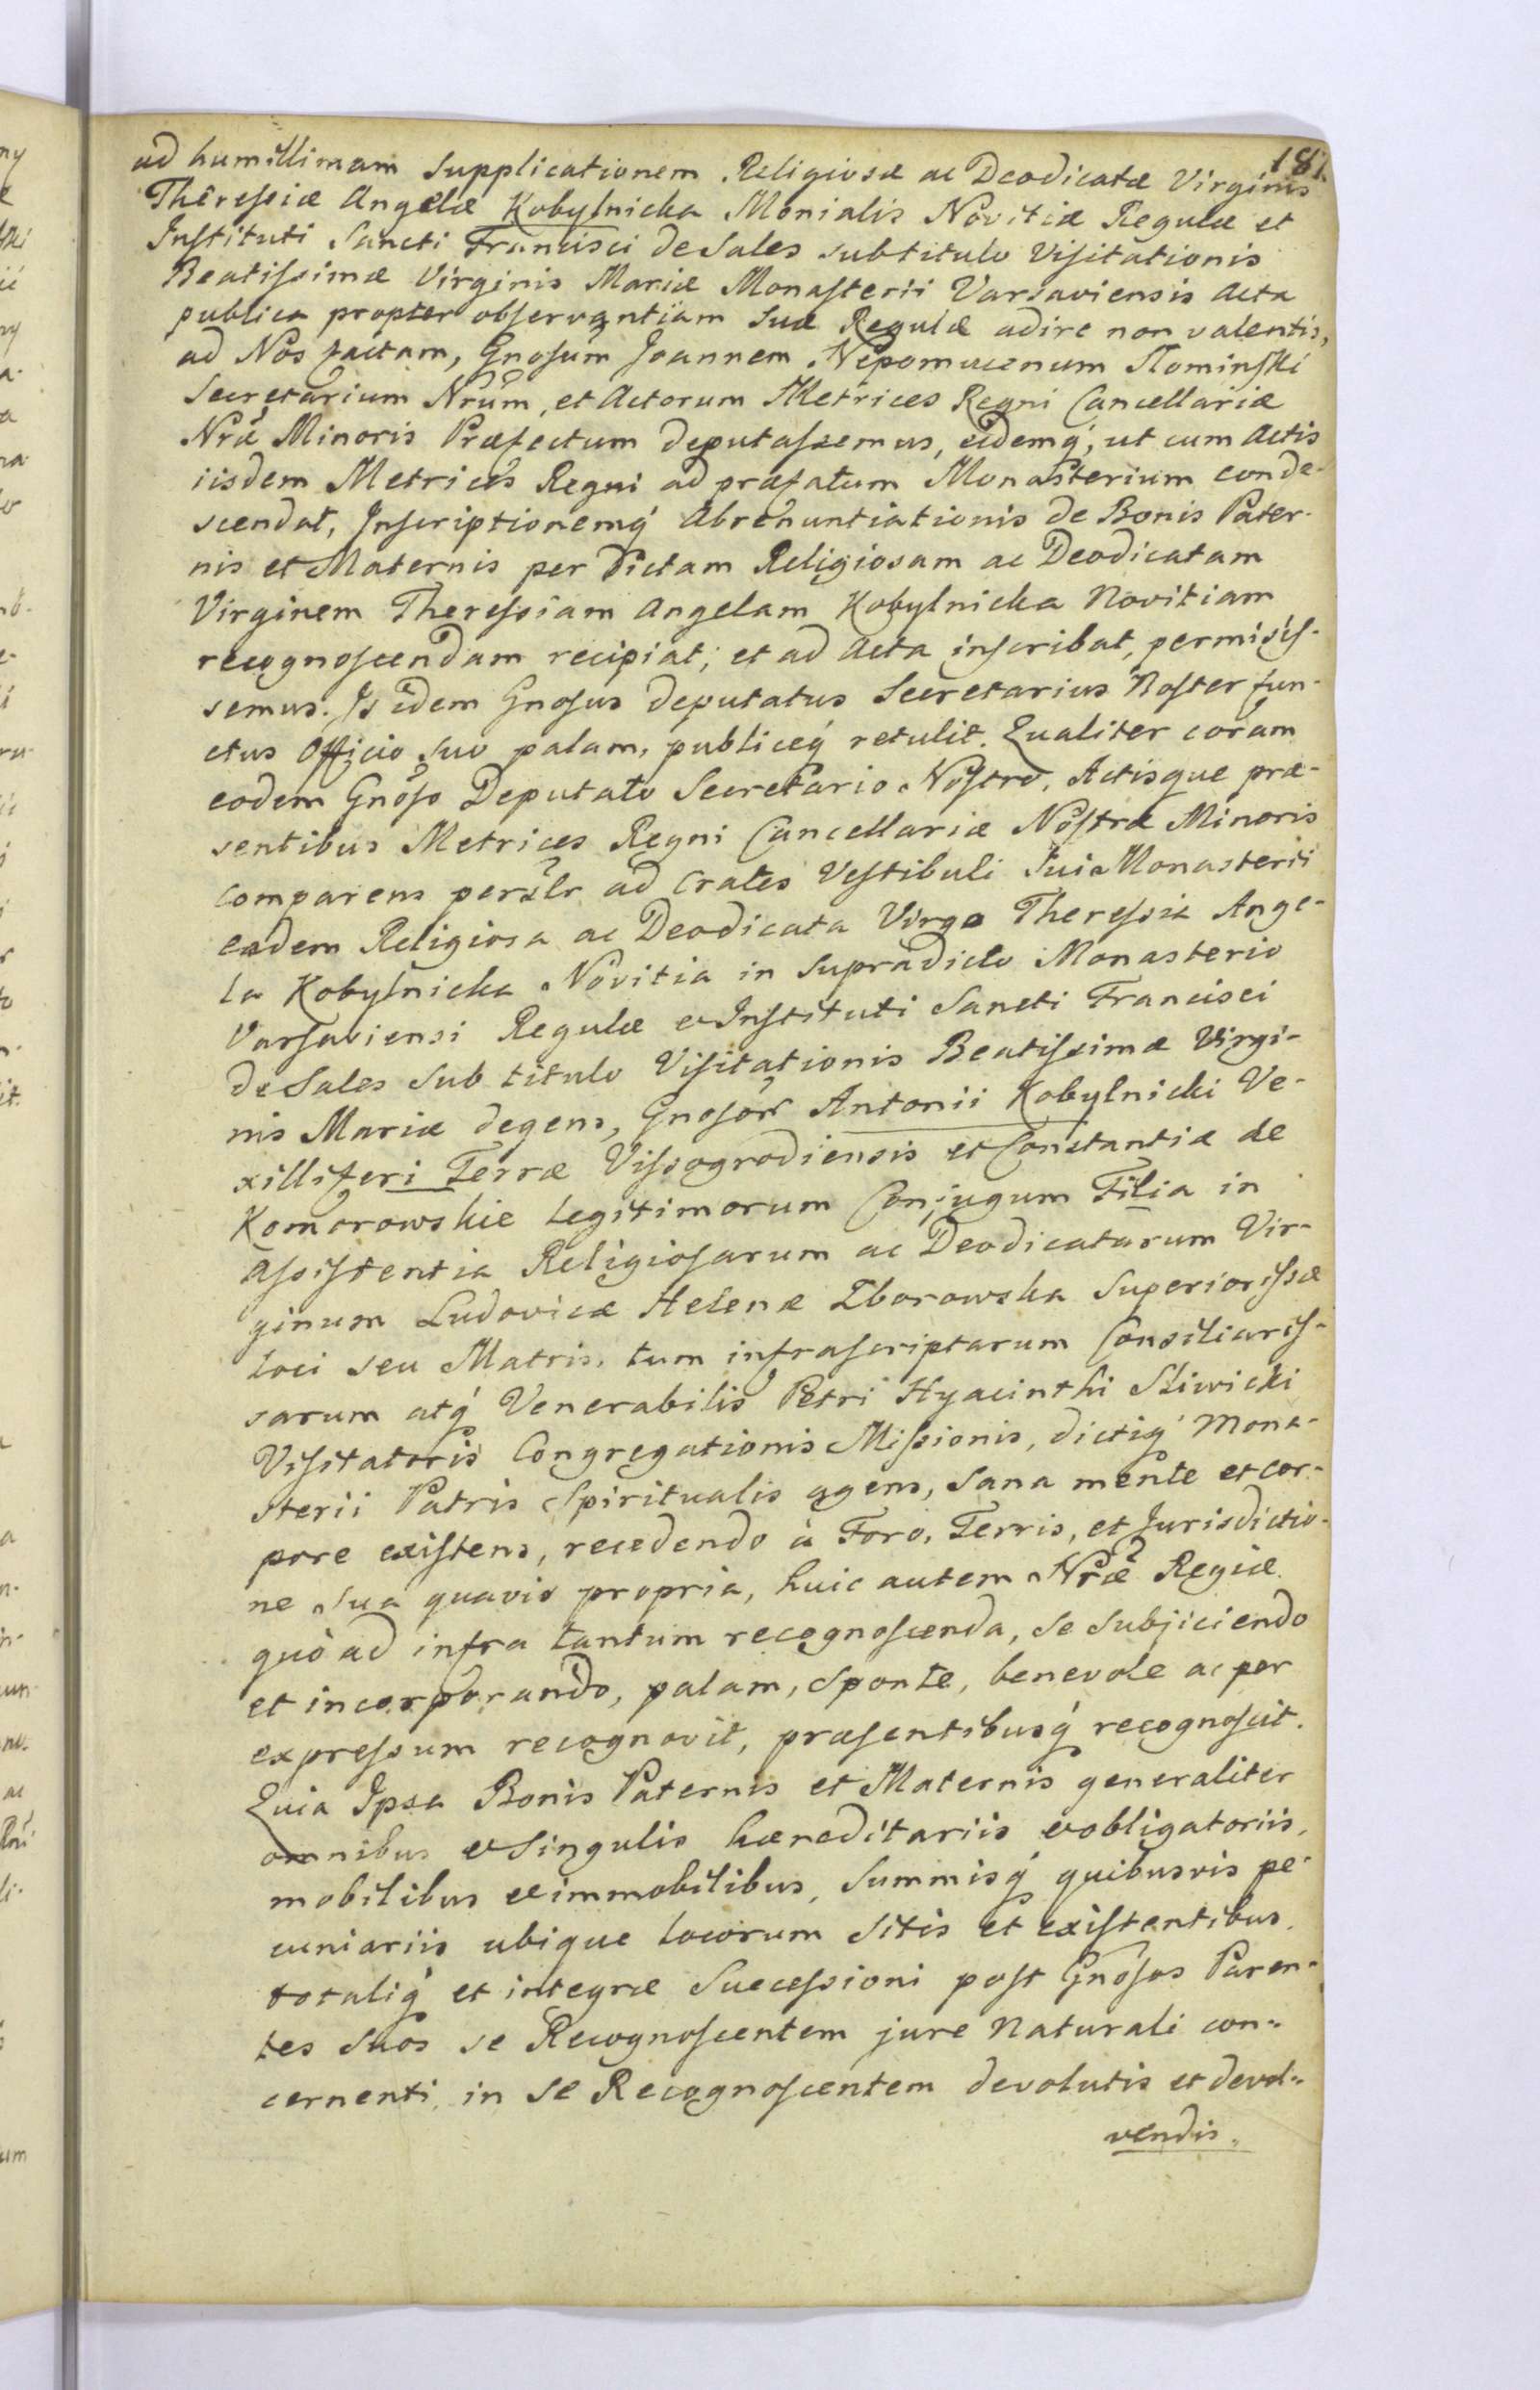 187.
ad humillimam Supplicationem Religiosæ ac Deodicatæ Virginis
Theressiæ Angelæ Kobylnicka Monialis Novitiæ Regulæ et
Instituti Sancti Francisci de Sales sub titulo Visitationis
Beatissimæ Virginis Mariæ Monasterii Varsaviensis Acta
publica propter observantiam Suæ Regulæ adire non valentis,
ad Nos factam, Gnosum Joannem Nepomucenum Słominski
Secretarium Nrum, et Actorum Metrices Regni Cancellariæ
Nræ Minoris Præfectum deputassemus, eidemq́, ut cum Actis
iisdem Metrices Regni ad præfatum Monasterium conde-
scendat, Inscriptionemq́ Abrenuntiationis de Bonis Pater-
nis et Maternis per dictam Religiosam ac Deodicatam
Virginem Theressiam Angelam Kobylnicka Novitiam
recognoscendam recipiat; et ad Acta inscribat, permisis-
semus. Is idem Gnosus deputatus Secretarius Noster fun-
ctus Officio suo palam, publiceq́ retulit. Qualiter coram
eodem Gnoso Deputato Secretario Nostro, Actisque præ-
sentibus Metrices Regni Cancellariæ Nostræ Minoris
comparens persłr ad Crates Vestibuli sui Monasterii
eadem Religiosa ac Deodicata Virgo Theressia Ange-
la Kobylnicka Novitia in supradicto Monasterio
Varsaviensi Regulæ et Instituti Sancti Francisci
de Sales sub titulo Visitationis Beatissimæ Virgi-
nis Mariæ degens, Gnosor̃ Antonii Kobylnicki Ve-
xilliferi Terræ Vissogrodiensis et Constantiæ de
Komorowskie legitimorum Conjugum Filia in
Assistentia Religiosarum ac Deodicatarum Vir-
ginum Ludovicæ Helenæ Zborowska Superiorissæ
loci seu Matris, tum infrascriptarum Consiliaris-
sarum atq́ Venerabilis Petri Hyacinthi Sliwicki
Visitatoris Congregationis Missionis, dictiq́ Mona-
sterii Patris Spiritualis agens, sana mente et cor-
pore existens, recedendo à Foro, Terris, et Jurisdictio-
ne sua quavis propria, huic autem Nræ Regiæ
quò ad infra tantum recognoscenda, se subjiciendo
et incorporando, palam, sponte, benevole ac per
expressum recognovit, præsentibusq́ recognoscit.
Quia Ipsa Bonis Paternis et Maternis generaliter
omnibus et singulis hæreditariis et obligatoriis,
mobilibus et immobilibus, summisq́ quibusvis pe-
cuniariis ubique locorum sitis et existentibus.
totaliq́ et integræ Successioni post Gnosos Paren-
tes suos se Recognoscentem jure naturali con-
cernenti, in se Recognoscentem devolutis et devol-
vendis.